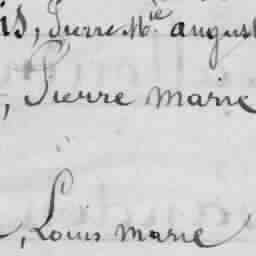 is, Pierre M.ie august
, Pierre marie
, Louis marie